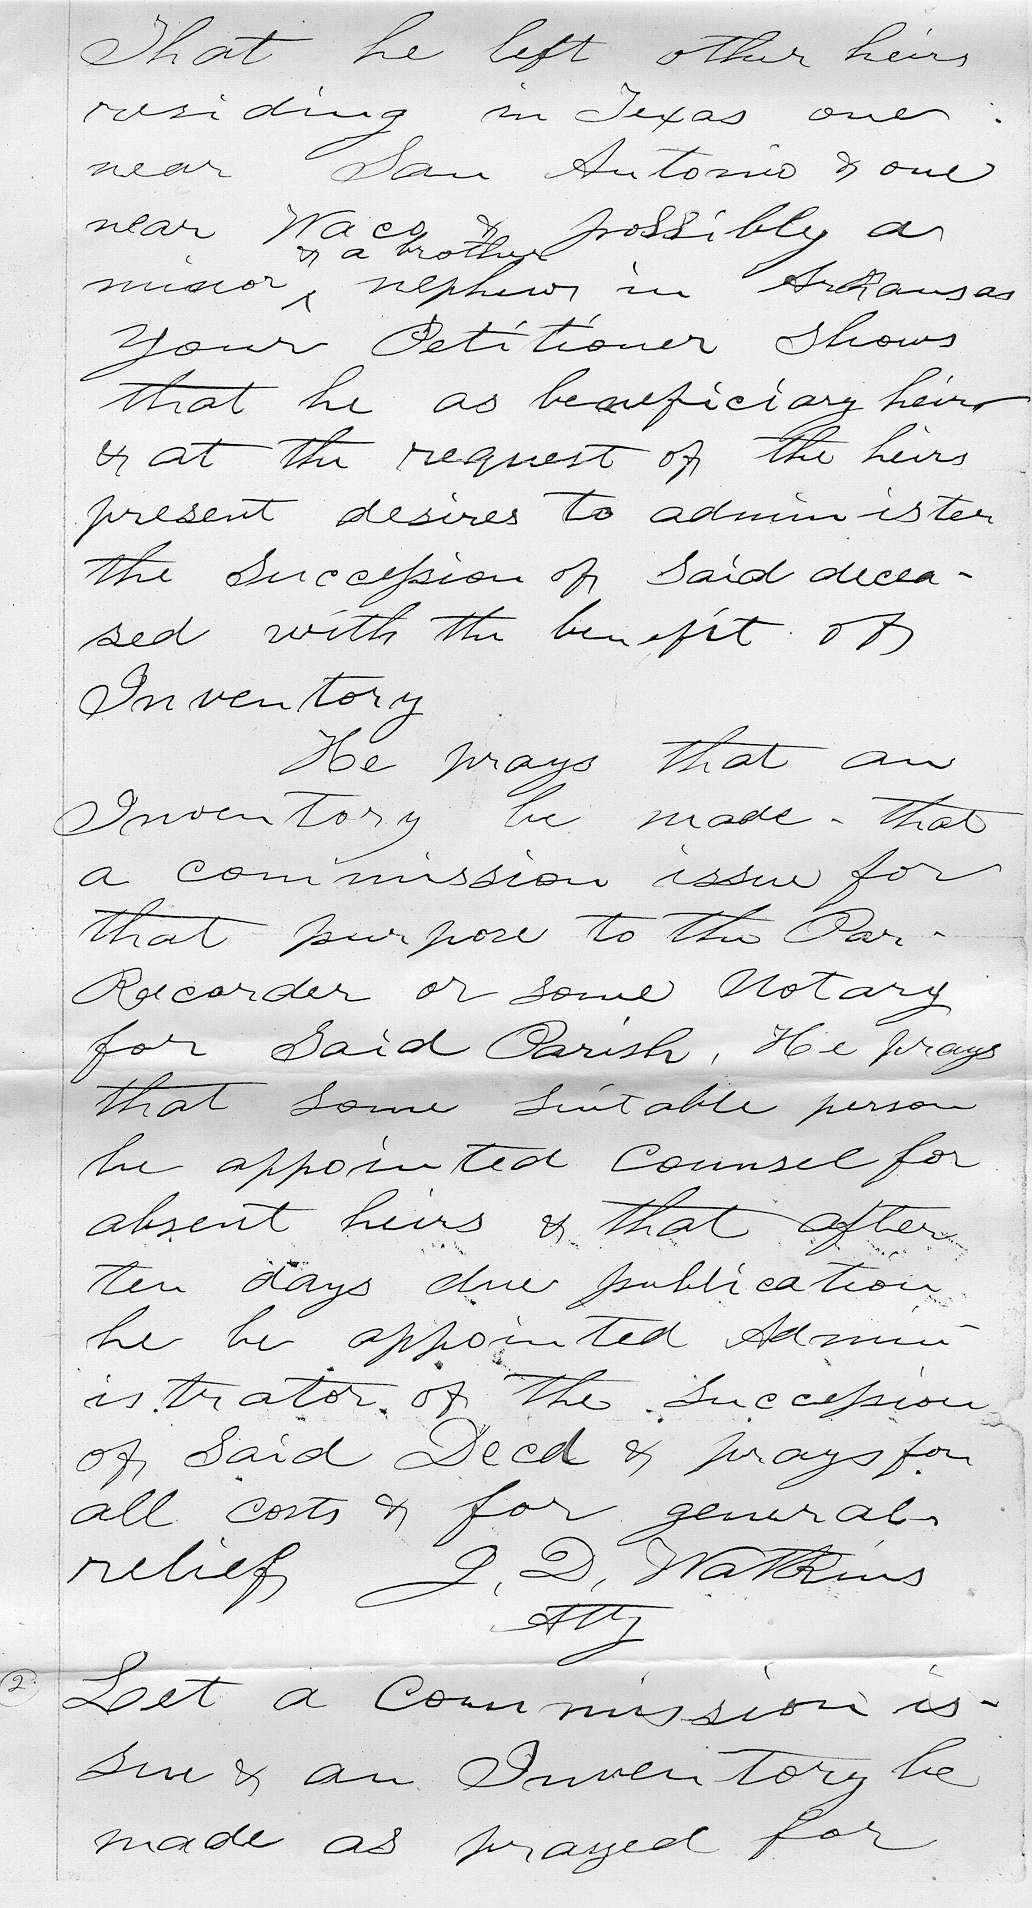 That he left other heirs
residing in Texas one
near San Antonio & one
near Waco & possibly a
& a brother
minor ^ nephew in Arkansas
Your Petitioner shows
that he as beneficiary heir
& at the request of the heirs
present desires to administer
the Succession of Said decea-
sed with the benefit of
Inventory
He prays that an
Inventory be made - that
a commission issue for
that purpose to the Par-
Recorder or some Notary
for Said Parish. He prays
that some suitable person
be appointed Counsel for
absent heirs & that after
ten days due publication
he be appointed Admin-
istrator of the Succession
of Said Decd & prays for
all costs & for general
relief J. D. Watkins
Atty
2.
Let a Commission is-
sue & an Inventory be
made as prayed for